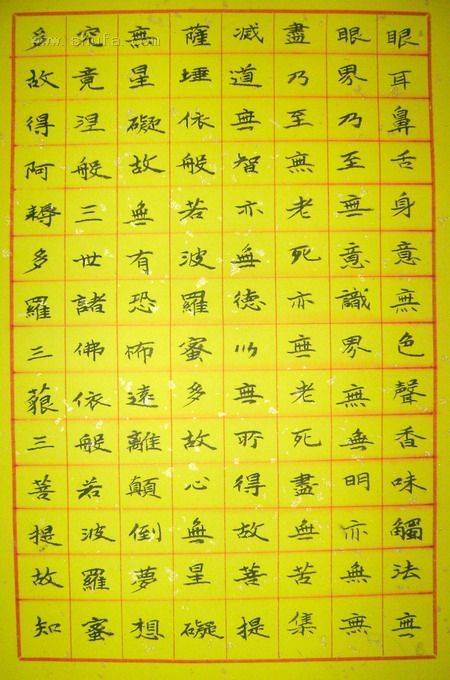 眼耳鼻舌身意無色聲香味觸法無
眼界乃至無意識界無無明亦無無
盡乃至無老死亦無老死盡無苦集
減道無智亦無德以無所得故菩提
薩埵依般若波羅蜜多故心無星礙
無星礙故無有恐怖遠離顛倒夢想
究竟涅般三世諸佛依般若波羅蜜
多故得阿耨多羅三藐三菩提故知
www.shufa.com